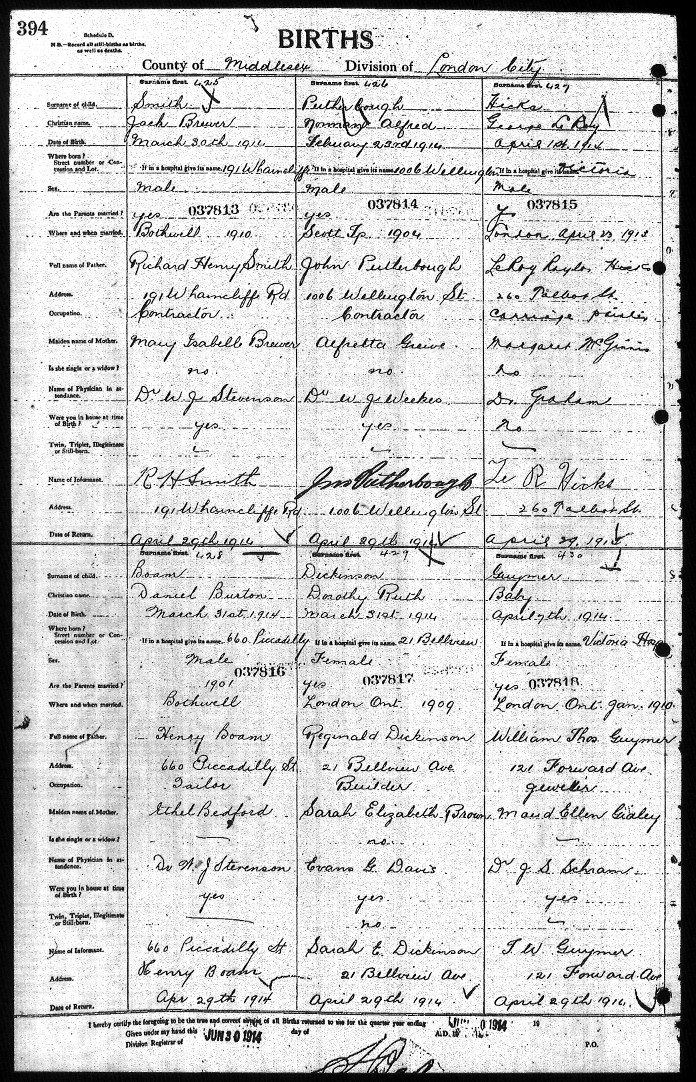 394
Schedule D.
N B.—Record all still-births as births, as well as deaths.
BIRTHS
County of Middlesex Division of London City
Surname first. 425 Surname first. 426 Surname first. 427
Surname of child. Smith Putherbough Hicks
Christian name. Jack Brewer Norman Alfred George Le Roy
Date of Birth. March 30th 1914 February 23rd 1914 April 1st 1914
Where born? Street number or Concession and Lot. If in a hospital give its name. 191 Wharncliffe If in a hospital give its name. 1006 Wellington If in a hospital give its name. Victoria
Sex. Male Male Male
037813 037814 037815
Are the Parents married? yes yes y
Where and when married. Bothwell 1910 Scott Tp 1904 London April 23 1913
Full name of Father. Richard Henry Smith John Putherbough LeRoy Hicks
Address. 191 Wharncliffe Rd 1006 Wellington St 260 Talbot St
Occupation. Contractor Contractor Carriage
Maiden name of Mother. Mary Isabelle Brewer Alfretta Greive Margaret McGinnis
Is she single or a widow? no no no
Name of Physician in attendance. Dr W J Stevenson Dr W J Weekes Dr. Graham
Were you in house at time of Birth? yes yes no
Twin, Triplet, Illegitimate or Still-born.
Name of Informant. R H Smith Jno Putherbough Le R Hicks
Address. 191 Wharncliffe Rd 1006 Wellington St 260 Talbot St
Date of Return. April 29th 1914 April 29th 1914 April 29. 1914
Surname first. 428 Surname first. 429 Surname first. 430
Surname of child. Boam Dickinson Guymer
Christian name. Daniel Burton Dorothy Ruth Baby
Date of Birth. March 31st 1914 March 31st 1914 April 7th 1914
Where born? Street number or Concession and Lot. If in a hospital give its name. 660 Piccadilly If in a hospital give its name. 21 Bellview If in a hospital give its name. Victoria Hosp
Sex. Male Female Female
037816 037817 037818
Are the Parents married? 1901 yes yes
Where and when married. Bothwell London Ont. 1909 London Ont. Jan. 1910
Full name of Father. Henry Boam Reginald Dickinson William Thos. Guymer
Address. 660 Piccadilly St 21 Bellview Ave 121 Forward Ave
Occupation. Tailor Builder Jeweller
Maiden name of Mother. Ethel Bedford Sarah Elizabeth Brown Maud Ellen Gidley
Is she single or a widow? no
Name of Physician in attendance. Dr W. J Stevenson Evans G. Davis Dr J S Schram
Were you in house at time of Birth? yes yes yes
Twin, Triplet, Illegitimate or Still-born. no
Name of Informant. 660 Piccadilly St Sarah E. Dickinson T. W. Guymer
Address. Henry Boam 21 Bellview Ave 121 Forward Ave
Date of Return. Apr 29th 1914 April 29th 1914 April 29th 1914
I hereby certify the foregoing to be the true and correct of all Births returned to me for the quarter year ending 0 1914 19
Given under my hand this JUN 30 1914 day of A.D. 19
Division Registrar of P.O.